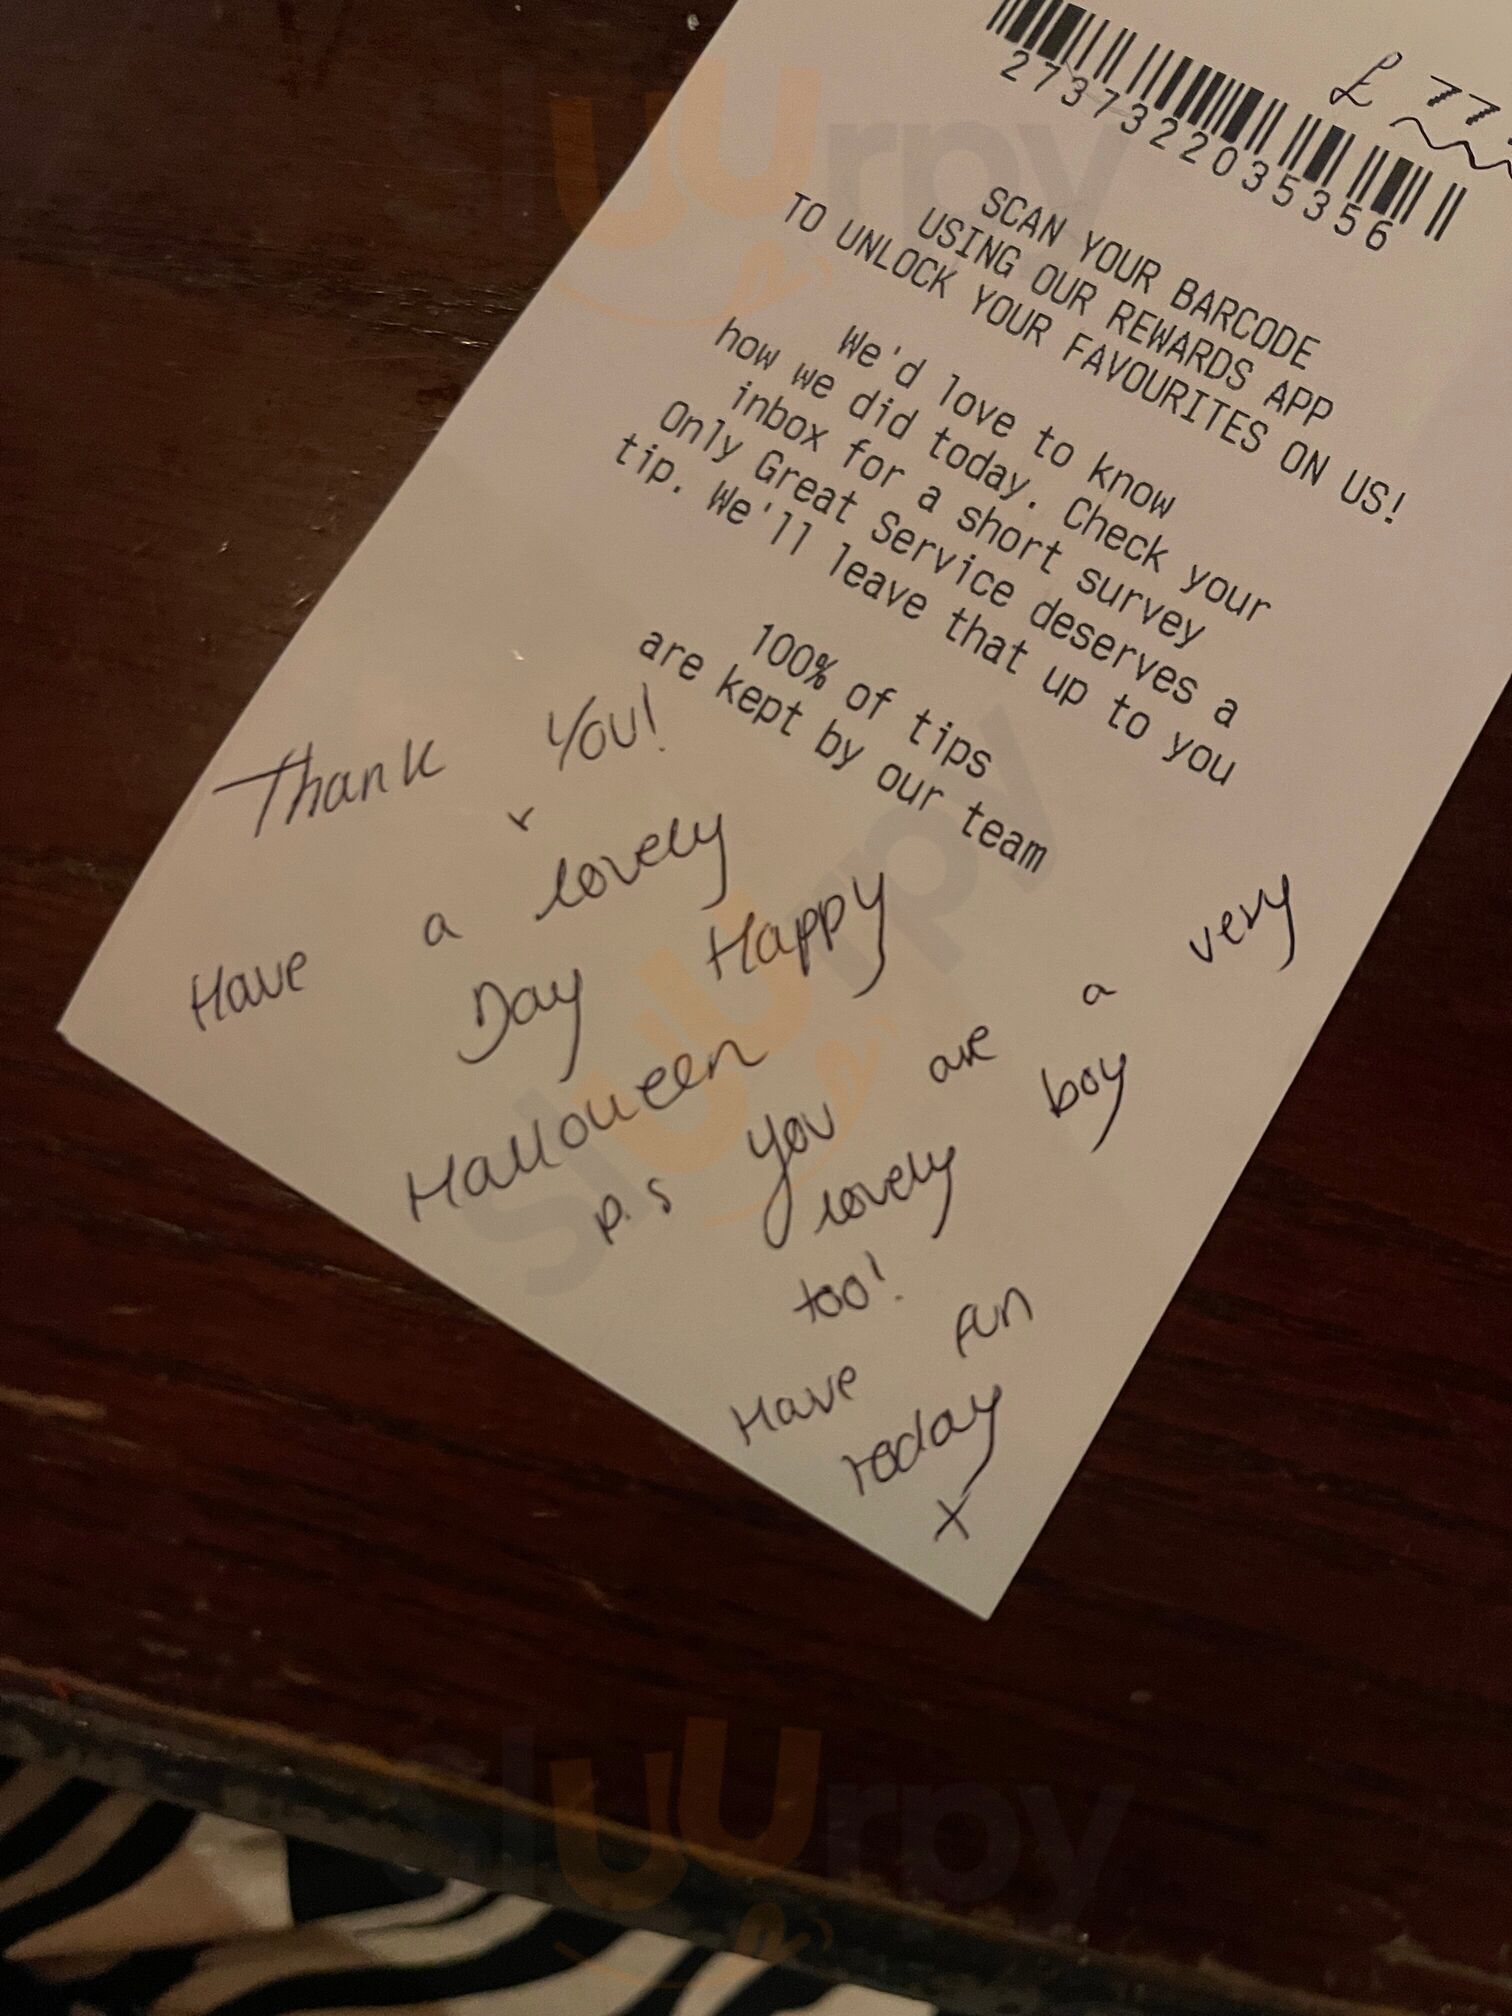 £ 77.
2737322035356
SCAN YOUR BARCODE
USING OUR REWARDS APP
TO UNLOCK YOUR FAVOURITES ON US!
We'd love to know
how we did today. Check your
inbox for a short survey
Only Great Service deserves a
tip. We'll leave that up to you
100% of tips
are kept by our team
Thank You!
x
Have a lovely
Day Happy
Halloueen
P.S You are a very
lovely boy
too!
Have fun
today
x
sluurpy
sluurpy
sluurpy